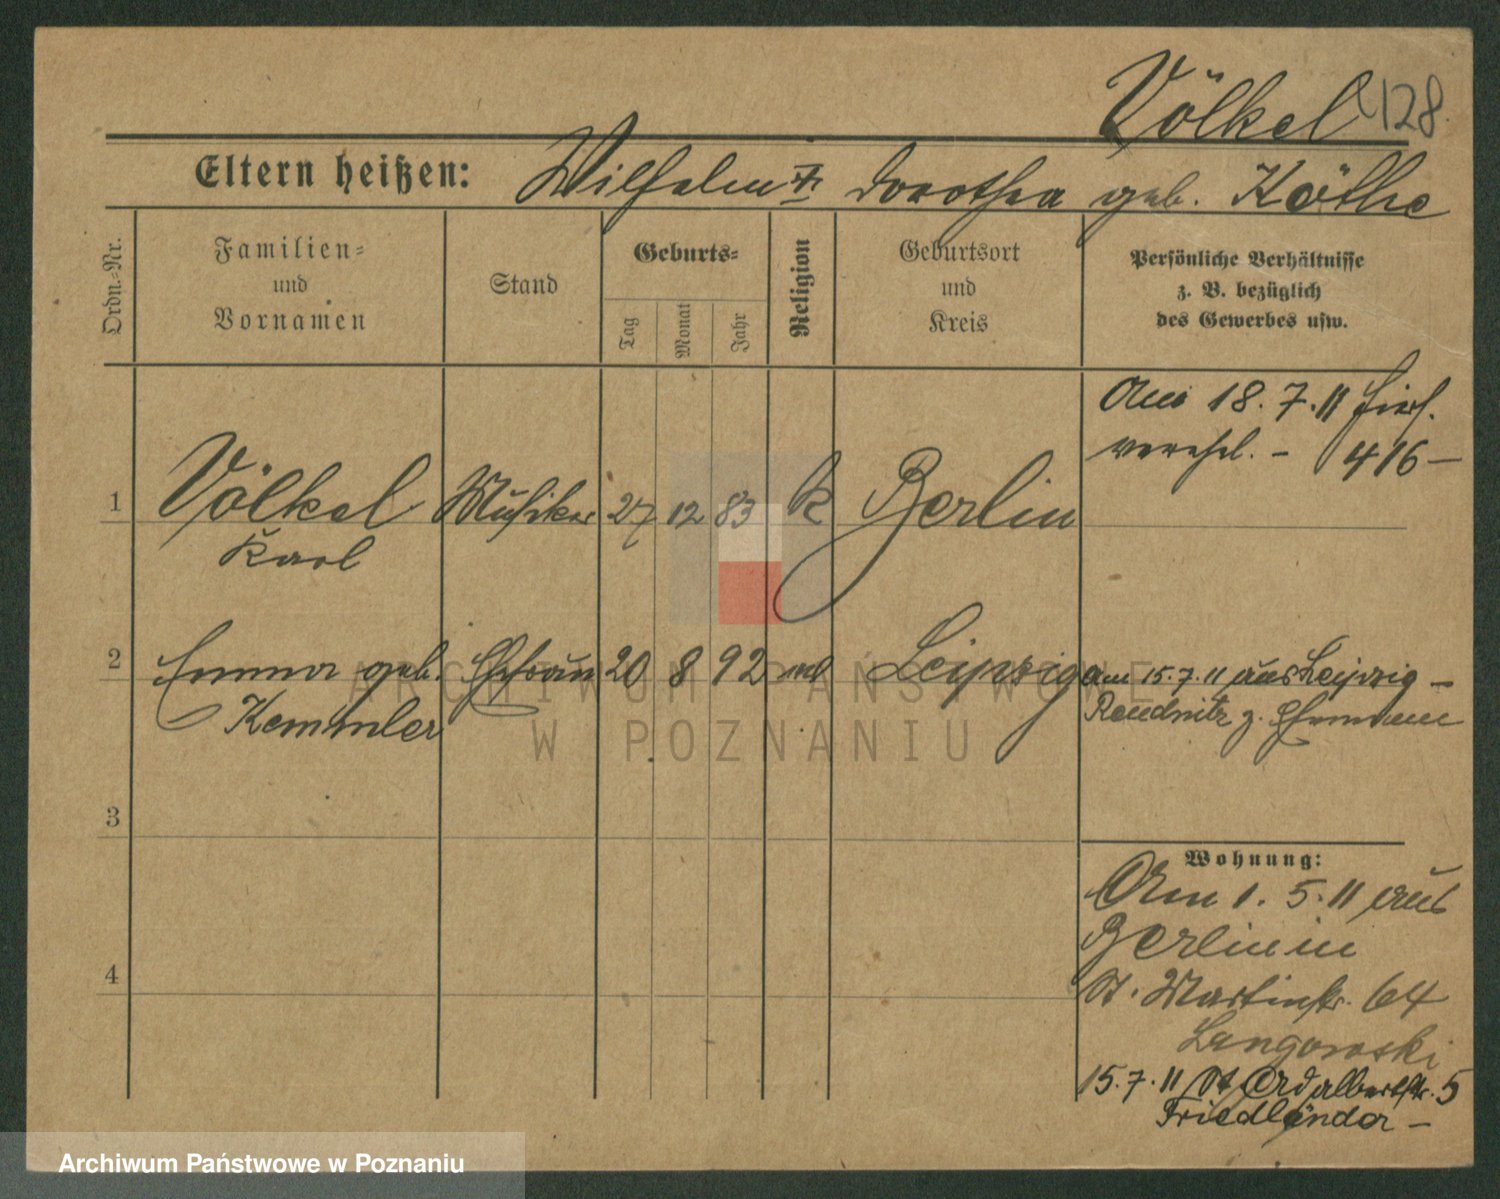 Völkel 128.
Eltern heißen: Wilhelm † Dorothea geb. Köthe
Ordn.-Nr.
Familien-
und
Vornamen
Stand
Geburts-
Tag
Monat
Jahr
Religion
Geburtsort
und
Kreis
Persönliche Verhältnisse
z. B. bezüglich
des Gewerbes usw.
Am 18.7.11 hier
verehel. - 416 -
1 Völkel Musiker 27 12 83 k Berlin
Karl
2 Emma geb. Ehefrau 20 8 92 Leipzig am 15.7.11 aus Leipzig -
Kemmler Reudnitz z. Ehemann
3
4
Wohnung:
Am 1.5.11 aus
Berlin in
St. Martinstr. 64
Langowski
15.7.11 St Adalbertstr. 5
Friedländer -
ARCHIWUM PAŃSTWOWE
W POZNANIU
Archiwum Państwowe w Poznaniu